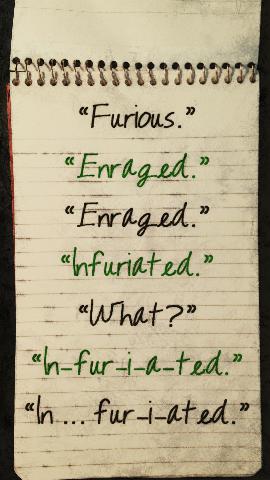 “Furious.”
“Enraged.”
“Enraged.”
“Infuriated.”
“What?”
“In-fur-i-a-ted.”
“In ... fur-i-ated.”